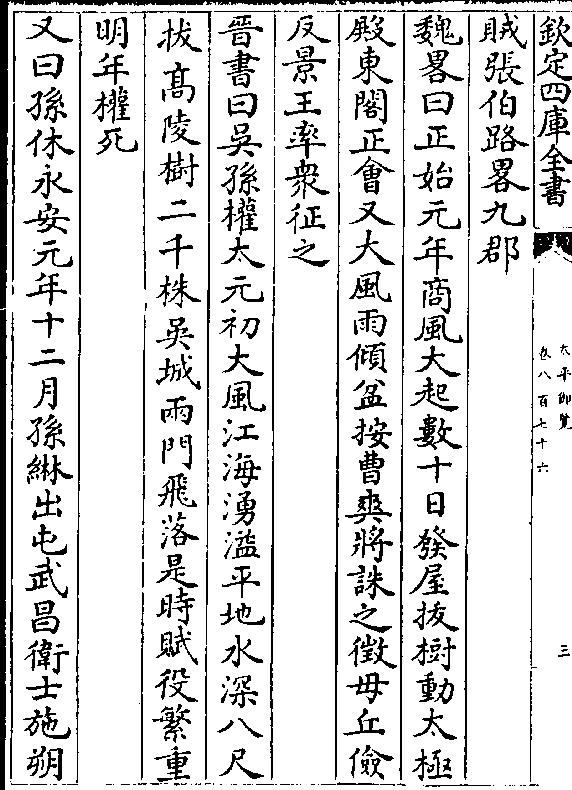 欽定四庫全書
太平御覽
卷八百七十六
三
賊張伯路畧九郡
魏畧曰正始元年商風大起數十日發屋拔樹動太極
殿東閣正會又大風雨傾盆按曹爽將誅之徵毋丘儉
反景王率衆征之
晉書曰吳孫權太元初大風江海湧濫平地水深八尺
拔高陵樹二千株吳城兩門飛落是時賦役繁重
明年權死
又曰孫休永安元年十二月孫綝出屯武昌衛士施朔